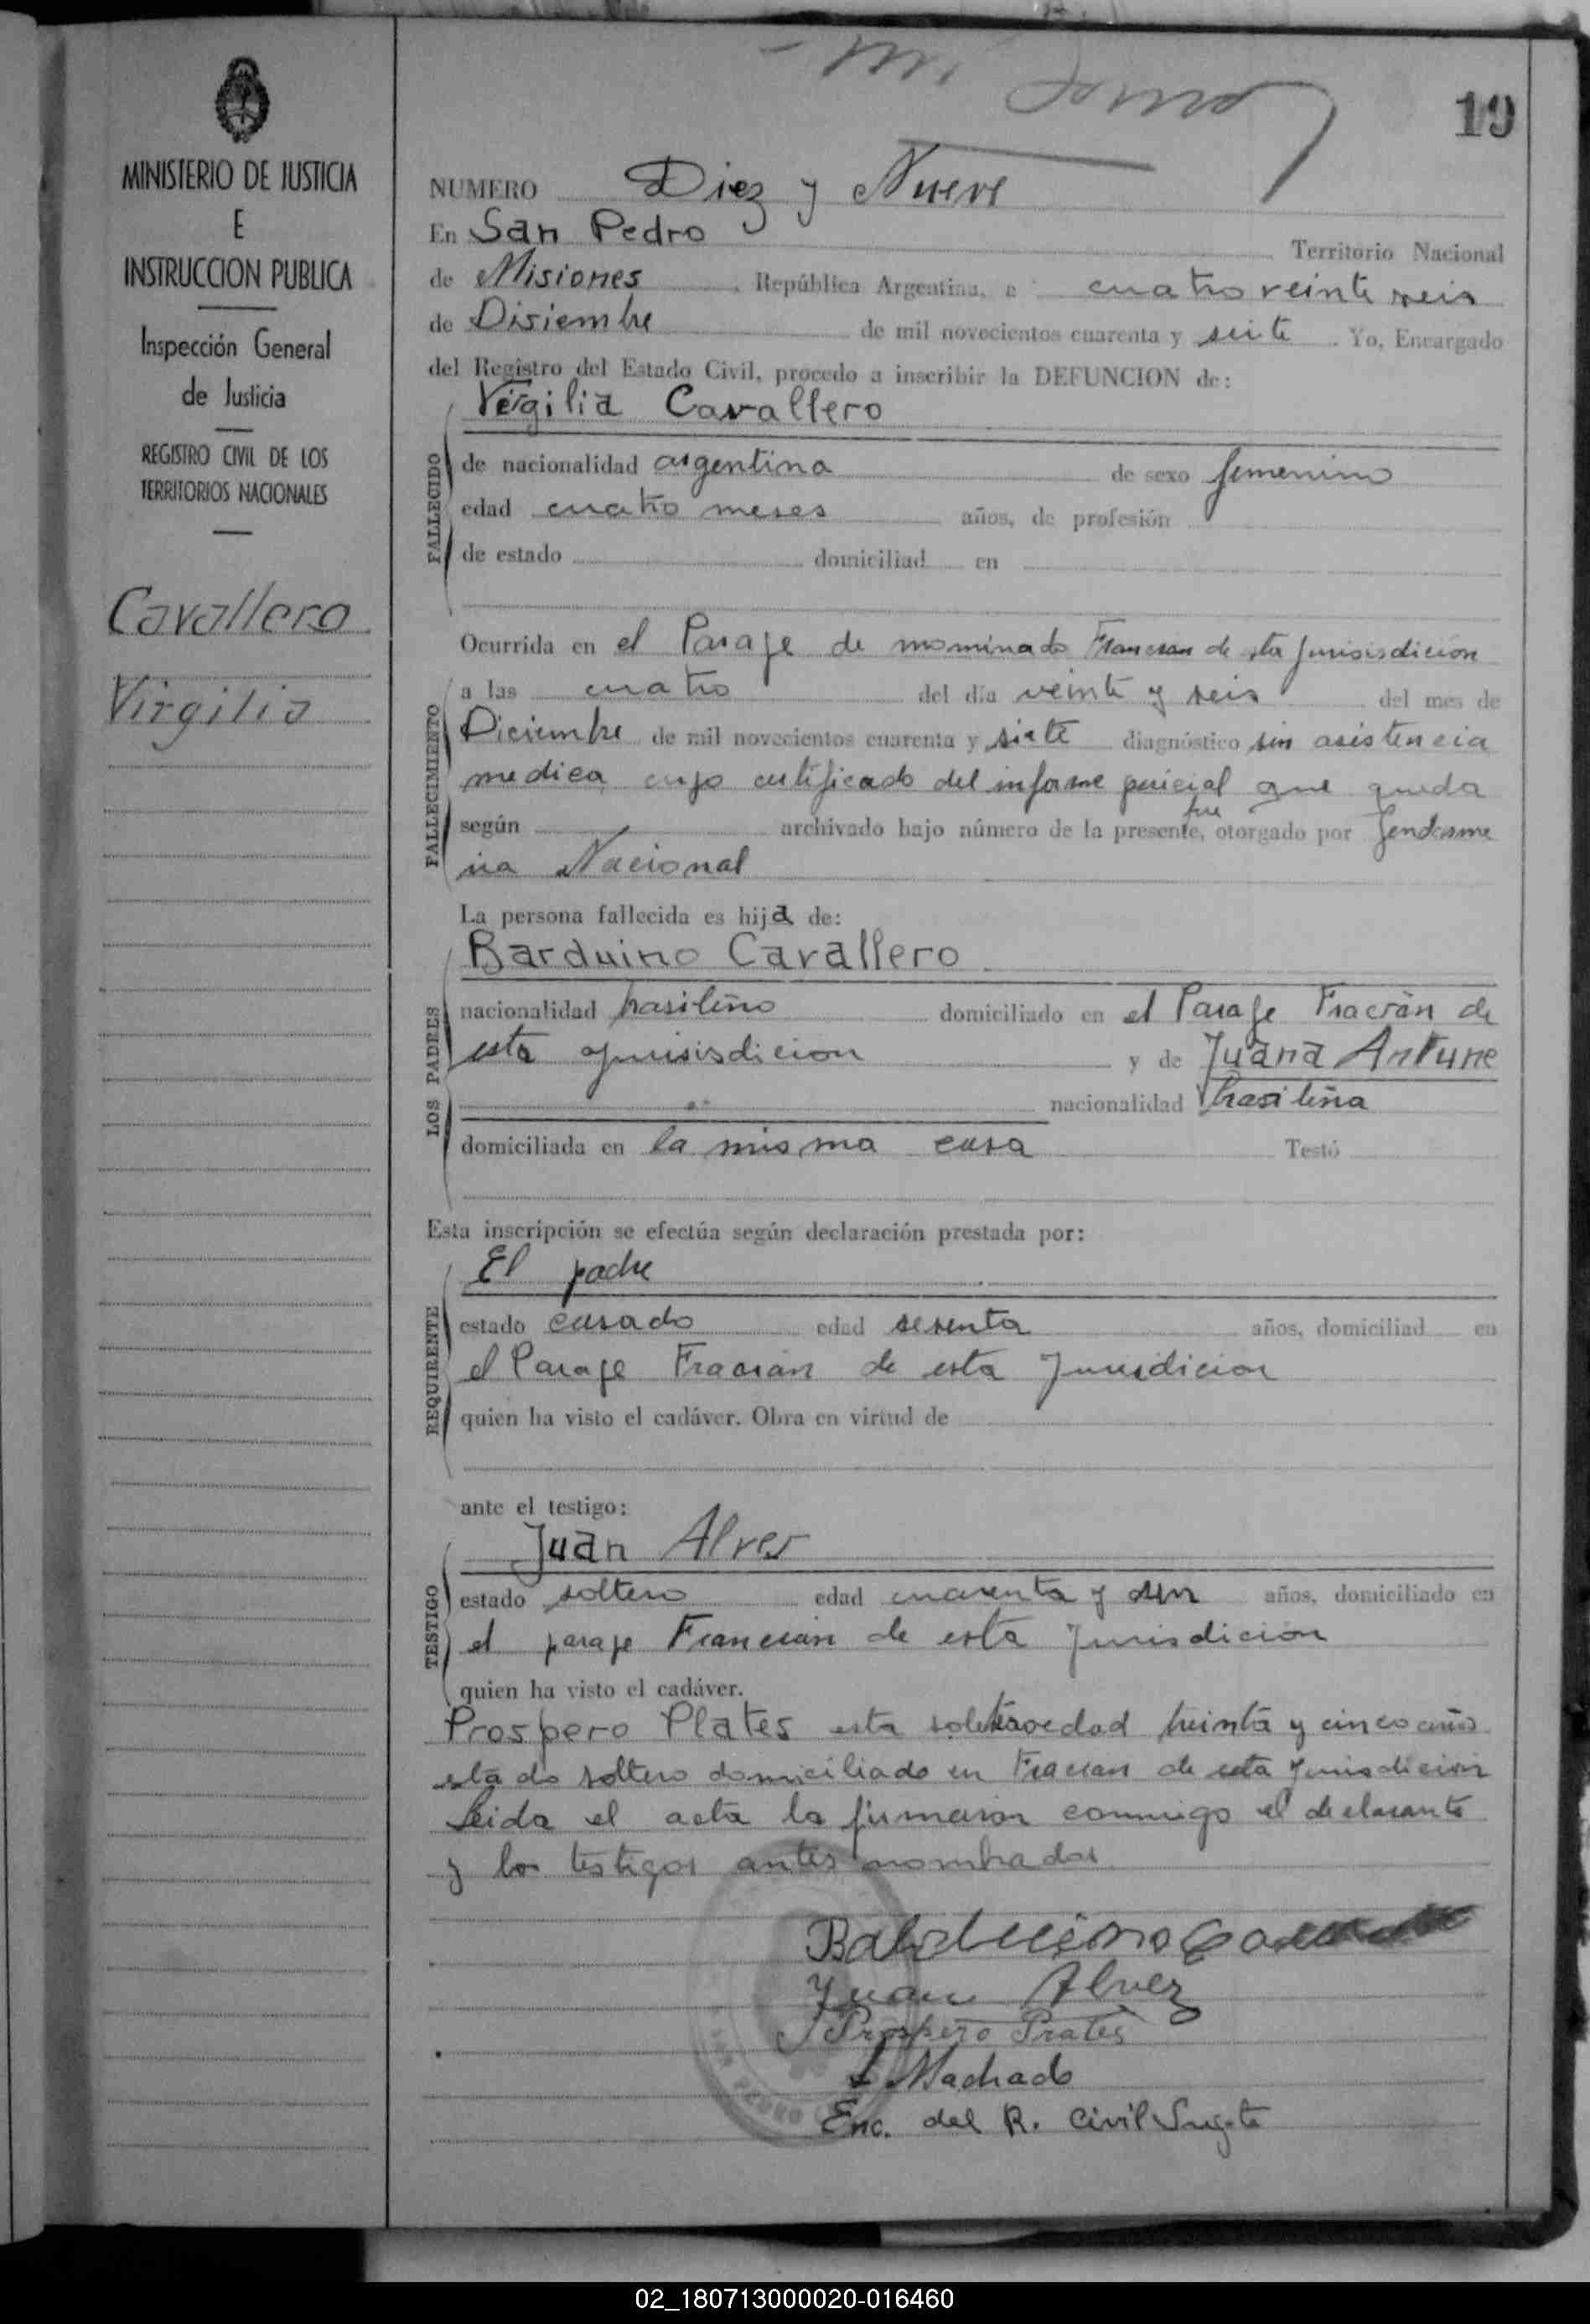 19
MINISTERIO DE JUSTICIA
E
INSTRUCCION PUBLICA
Inspección General
de Justicia
REGISTRO CIVIL DE LOS
TERRITORIOS NACIONALES
Cavallero
Virgilia
NUMERO Diez y Nueve
En San Pedro Territorio Nacional
de Misiones, República Argentina, a cuatro veinte seis
de Disiembre de mil novecientos cuarenta y seite. Yo, Encargado
del Registro del Estado Civil, procedo a inscribir la DEFUNCION de:
Virgilia Cavallero
FALLECIDO
de nacionalidad argentina de sexo femenino
edad cuatro meses años, de profesión
de estado domiciliad en
Ocurrida en el Paraje de nominado Francran de sta Jurisisdicion
FALLECIMIENTO
a las cuatro del día veinte y seis del mes de
Diciembre de mil novecientos cuarenta y siete diagnóstico sin asistencia
medica cuyo certificado del informe pericial que queda
según archivado bajo número de la presente, fue otorgado por Jendarme
ria Nacional
La persona fallecida es hija de:
LOS PADRES
Barduino Cavallero
nacionalidad brasileño domiciliado en el Paraje Fracrán de
esta jurisisdicion y de Juana Antune
nacionalidad brasileña
domiciliada en la misma casa Testó
Esta inscripción se efectúa según declaración prestada por:
REQUIRENTE
El padre
estado casado edad sesenta años, domiciliad en
el Paraje Fracran de esta Jurisdicion
quien ha visto el cadáver. Obra en virtud de
ante el testigo:
TESTIGO
Juan Alves
estado soltero edad cuarenta y un años, domiciliado en
el paraje Francran de esta Jurisdicion
quien ha visto el cadáver.
Prospero Plates esta edad treinta y cinco años
estado soltero domiciliado en Fracran de esta Jurisdicion
Leida el acta la firmaron conmigo el declarante
y los testigos antes nombrados
Balduino
Juan Alvez
Prospero Prates
L Machado
Enc. del R. Civil
SAN PEDRO
02_180713000020-016460